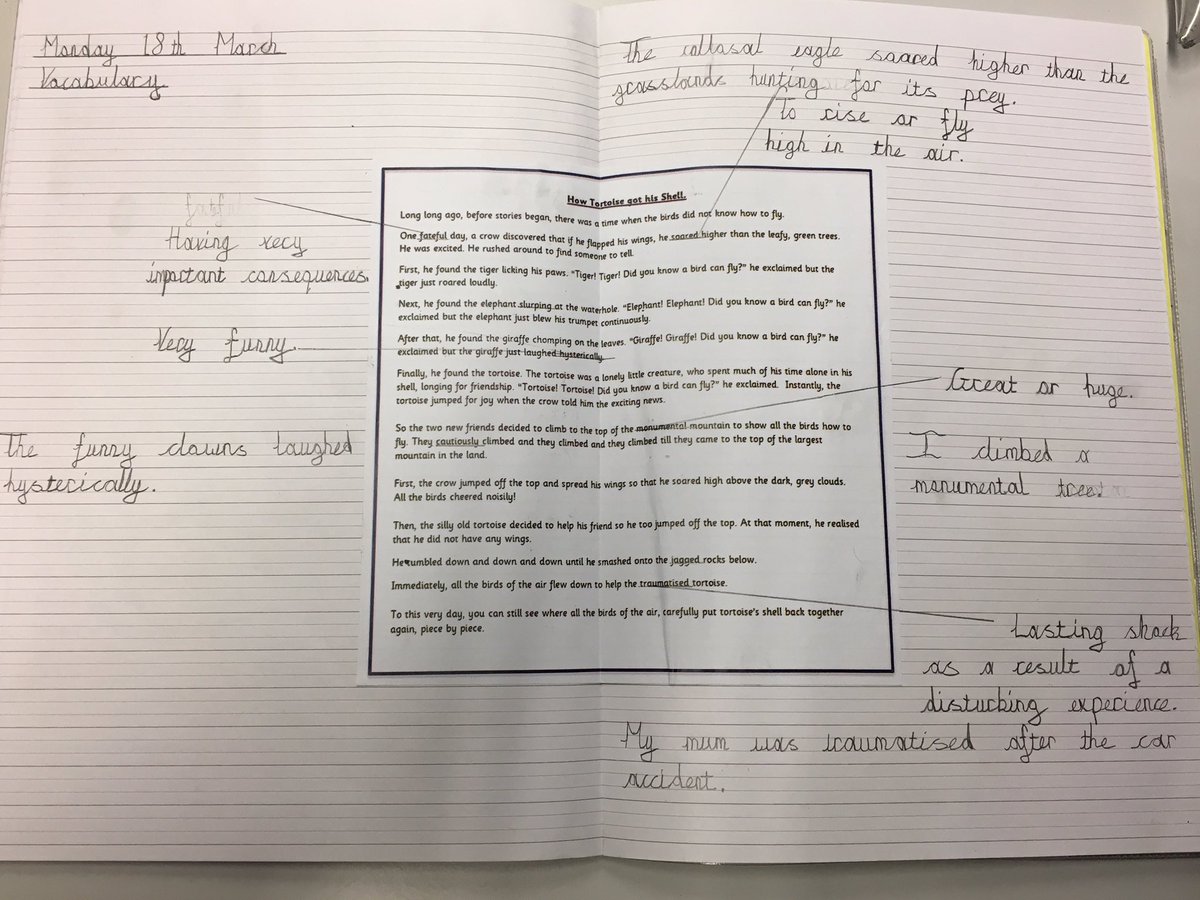 Monday 18th March
Vocabulary
The collasal eagle soared higher than the
grasslands hunting for its prey.
To rise or fly
high in the air.
Having very
important consequences.
Very funny.
The funny clowns laughed
hysterically.
How Tortoise got his Shell.
Long long ago, before stories began, there was a time when the birds did not know how to fly.
One fateful day, a crow discovered that if he flapped his wings, he soared higher than the leafy, green trees.
He was excited. He rushed around to find someone to tell.
First, he found the tiger licking his paws. “Tiger! Tiger! Did you know a bird can fly?” he exclaimed but the
tiger just roared loudly.
Next, he found the elephant slurping at the waterhole. “Elephant! Elephant! Did you know a bird can fly?” he
exclaimed but the elephant just blew his trumpet continuously.
After that, he found the giraffe chomping on the leaves. “Giraffe! Giraffe! Did you know a bird can fly?” he
exclaimed but the giraffe just laughed hysterically.
Finally, he found the tortoise. The tortoise was a lonely little creature, who spent much of his time alone in his
shell, longing for friendship. “Tortoise! Tortoise! Did you know a bird can fly?” he exclaimed. Instantly, the
tortoise jumped for joy when the crow told him the exciting news.
So the two new friends decided to climb to the top of the monumental mountain to show all the birds how to
fly. They cautiously climbed and they climbed and they climbed till they came to the top of the largest
mountain in the land.
First, the crow jumped off the top and spread his wings so that he soared high above the dark, grey clouds.
All the birds cheered noisily!
Then, the silly old tortoise decided to help his friend so he too jumped off the top. At that moment, he realised
that he did not have any wings.
He tumbled down and down and down until he smashed onto the jagged rocks below.
Immediately, all the birds of the air flew down to help the traumatised tortoise.
To this very day, you can still see where all the birds of the air, carefully put tortoise’s shell back together
again, piece by piece.
Great or huge.
I climbed a
monumental tree.
Lasting shock
as a result of a
disturbing experience.
My mum was traumatised after the car
accident.